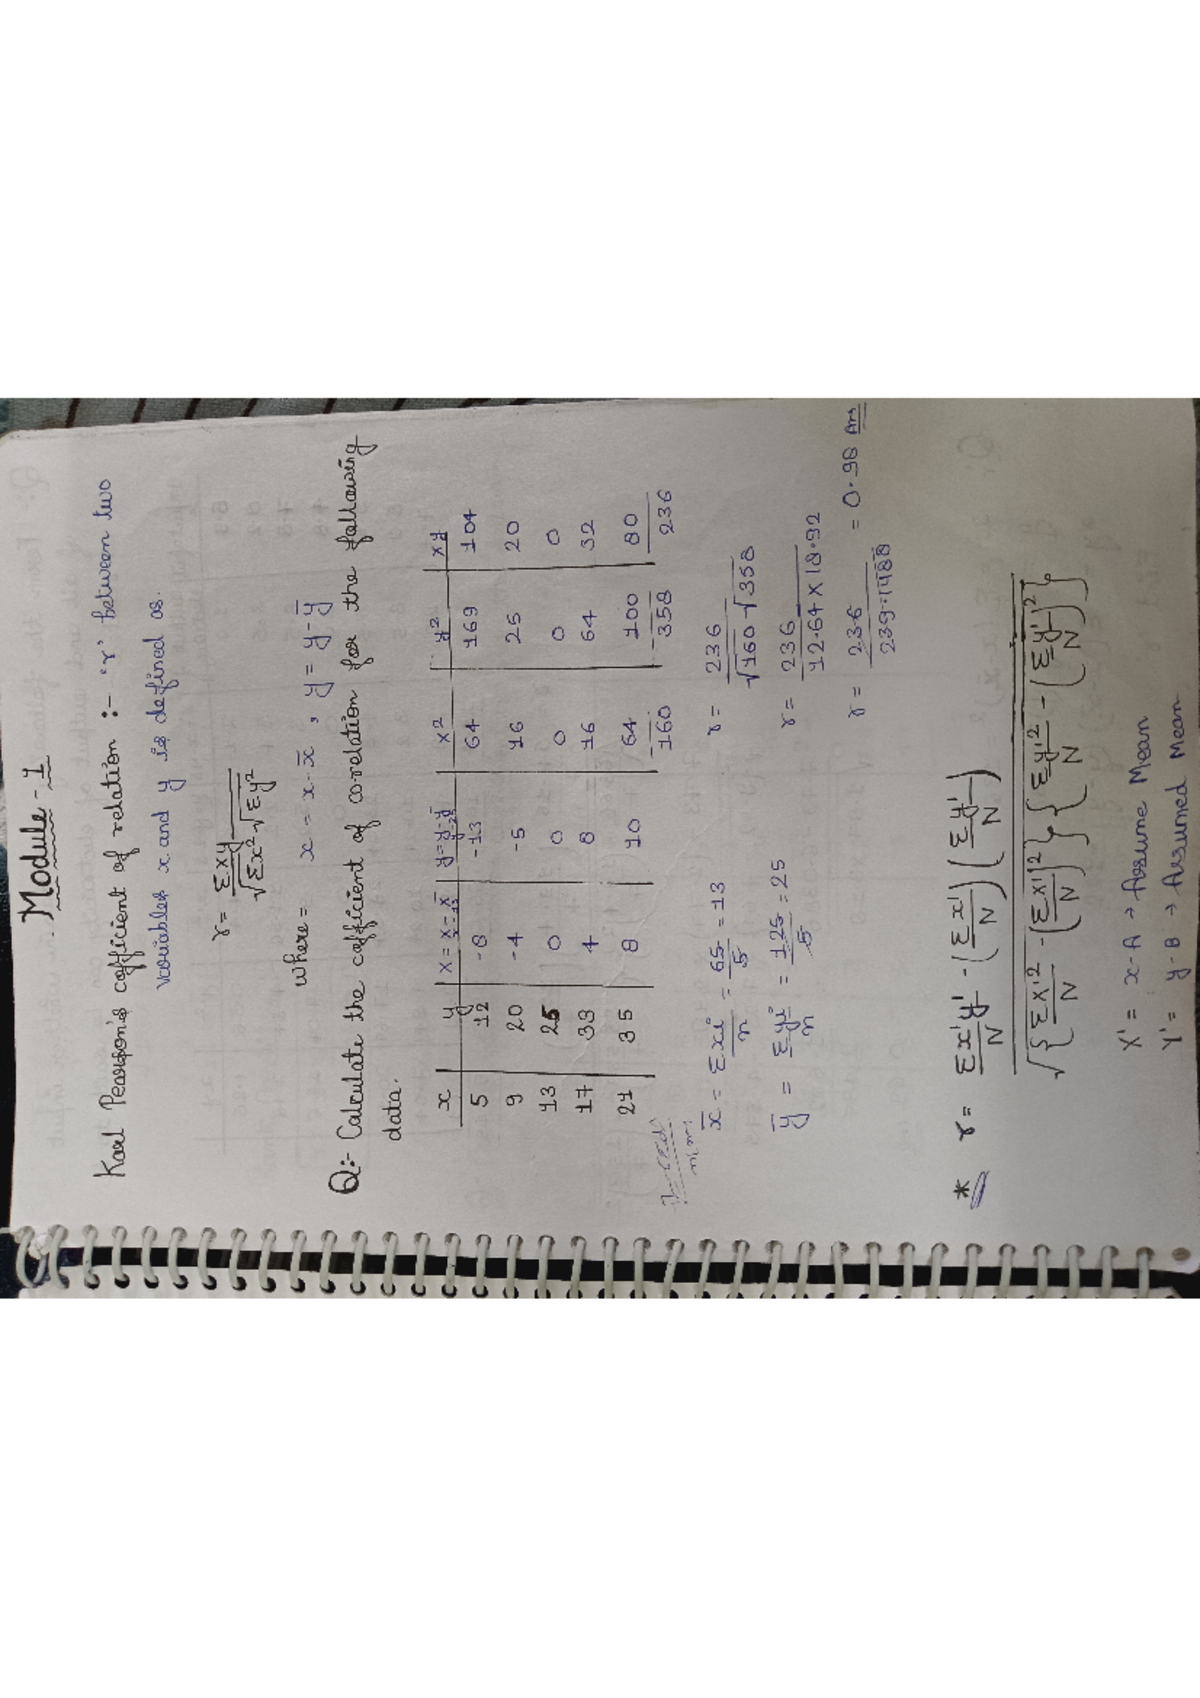 Module - 1
Karl Pearson's cofficient of relation :- 'r' between two
variables x and y is defined as.
r = Σxy / √Σx² √Σy²
where = x = x - x̄ , y = y - ȳ
Q:- Calculate the cofficient of co-relation for the following
data.
x | y | X = x - x̄ x - 13 | y = y - ȳ y - 25 | x² | y² | xy
5 | 12 | -8 | -13 | 64 | 169 | 104
9 | 20 | -4 | -5 | 16 | 25 | 20
13 | 25 | 0 | 0 | 0 | 0 | 0
17 | 33 | 4 | 8 | 16 | 64 | 32
21 | 35 | 8 | 10 | 64 | 100 | 80
160 | 358 | 236
x̄ = Σxi / n = 65 / 5 = 13
ȳ = Σyi / n = 125 / 5 = 25
r = 236 / √160 √358
r = 236 / 12.64 × 18.92
r = 236 / 239.1488 = 0.98 Ans
* r = Σx'y' / N - (Σx' / N) (Σy' / N)
√{Σx'² / N - (Σx' / N)²} {Σy'² / N - (Σy' / N)²}
X' = x - A → Assume Mean
Y' = y - B → Assumed Mean